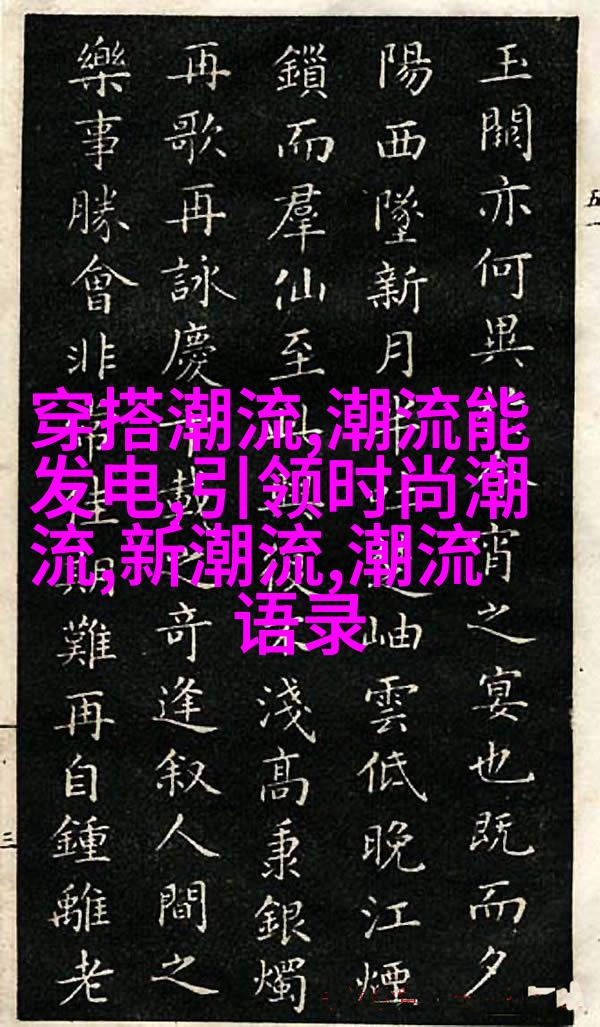 玉闕亦何異宵之宴也既而夕
陽西墜新月岫雲低晚江煙
鎖而羣仙至此復不淺高秉銀燭
再歌再詠慶千載之奇逢叙人間之
樂事勝會非常佳期難再自鍾離老
穿搭潮流,潮流能
发电,引领时尚潮
流,新潮流,潮流
语录
三